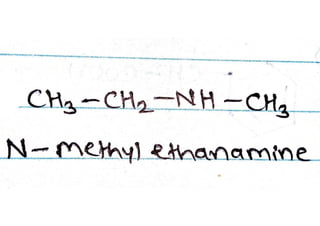 CH₃-CH₂-NH-CH₃
N-methyl ethanamine